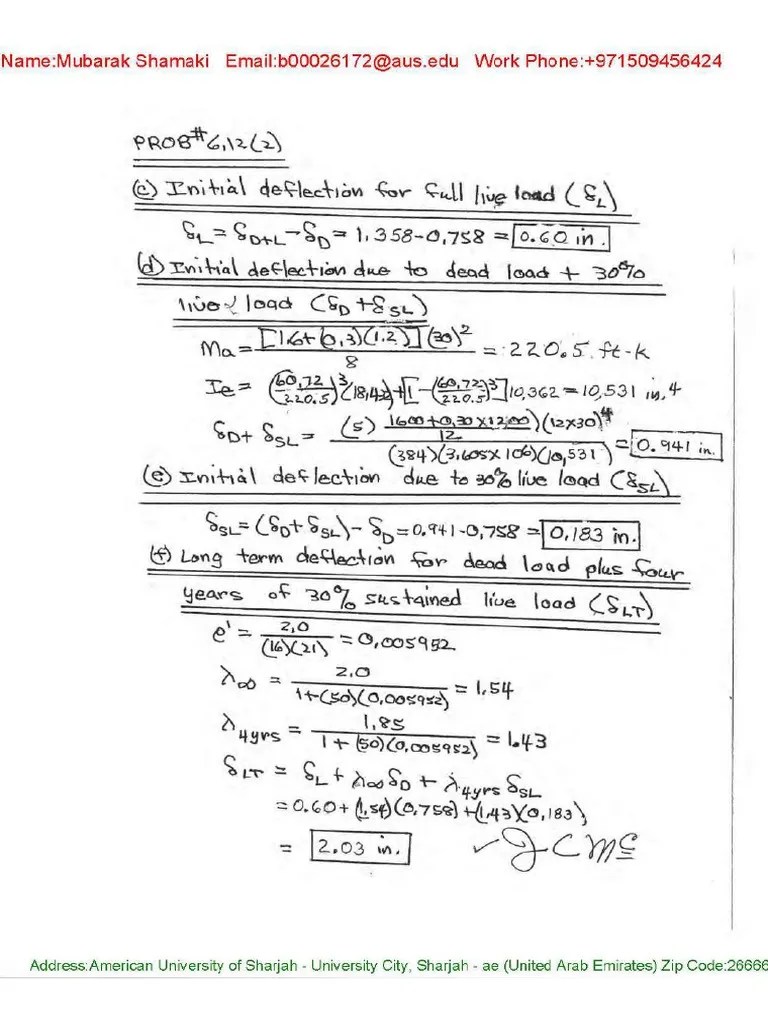 Name:Mubarak Shamaki Email:b00026172@aus.edu Work Phone:+971509456424
PROB# 6.12(2)
(c) Initial deflection for full live load (δL)
δL = δD+L − δD = 1.358 − 0.758 = 0.60 in.
(d) Initial deflection due to dead load + 30%
live load (δD + δSL)
Ma = [1.6+(0.3)(1.2)](30)²/8 = 220.5 ft-k
Ie = (60.72/220.5)³(18,42) + [1 − (60.72/220.5)³]10,362 = 10,531 in.4
δD + δSL = (5) (1600+0.30×1200)/12 (12×30)⁴ / (384)(3.605×106)(10,531) = 0.941 in.
(e) Initial deflection due to 30% live load (δSL)
δSL = (δD + δSL) − δD = 0.941 − 0.758 = 0.183 in.
(f) Long term deflection for dead load plus four
years of 30% sustained live load (δLT)
e' = 2.0/(16)(21) = 0.005952
λ∞ = 2.0/1+(50)(0.005952) = 1.54
λ4yrs = 1.85/1+(50)(0.005952) = 1.43
δLT = δL + λ∞ δD + λ4yrs δSL
= 0.60 + (1.54)(0.758) + (1.43)(0.183)
= 2.03 in. ✓ JCMC
Address:American University of Sharjah - University City, Sharjah - ae (United Arab Emirates) Zip Code:26666